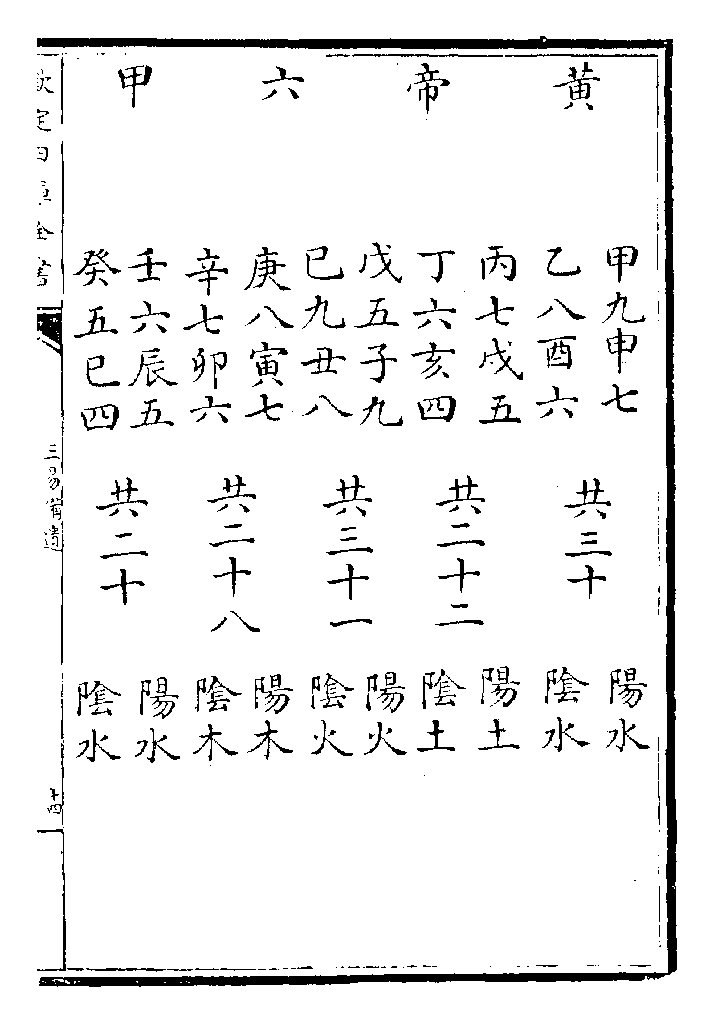 黄帝六甲
甲九申七
乙八酉六
共三十
陽水
陰水
丙七戌五
丁六亥四
共二十二
陽土
陰土
戊五子九
已九丑八
共三十一
陽火
陰火
庚八寅七
辛七卯六
共二十八
陽木
陰木
壬六辰五
癸五巳四
共二十
陽水
陰水
欽定四庫全書
三易備遺
十四